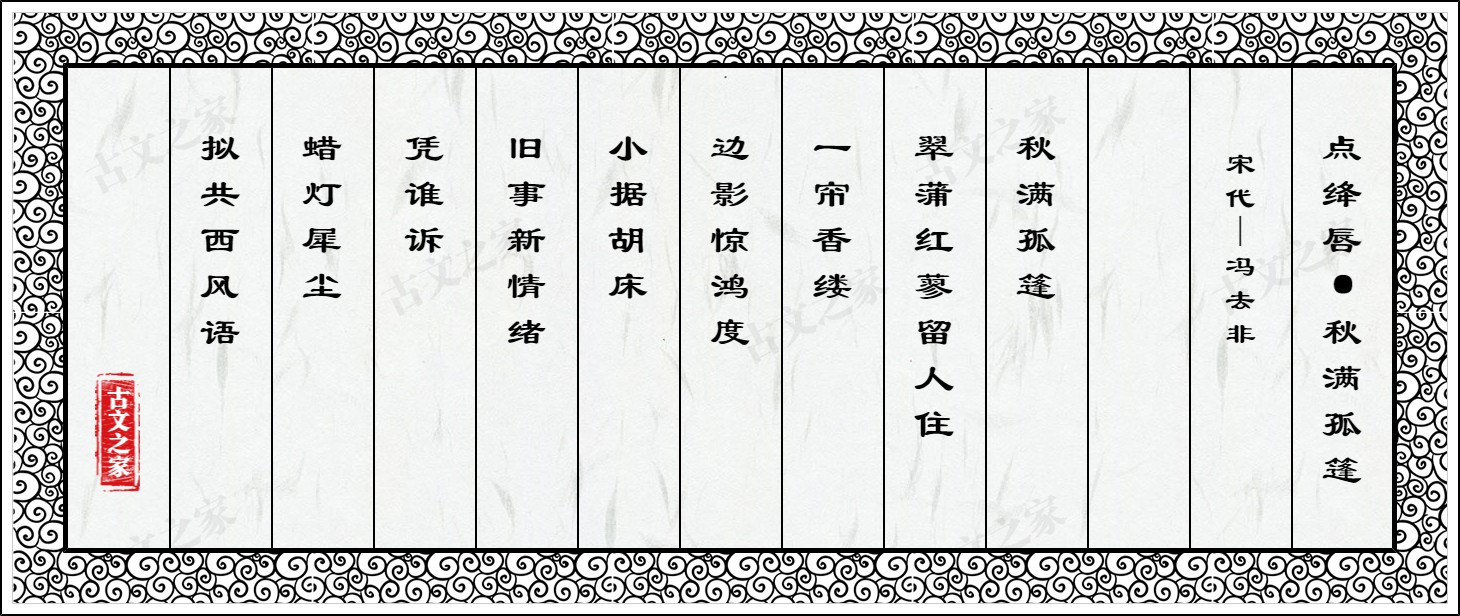 点绛唇●秋满孤篷
宋代—冯去非
秋满孤篷
翠蒲红蓼留人住
一帘香缕
边影惊鸿度
小据胡床
旧事新情绪
凭谁诉
蜡灯犀尘
拟共西风语
古文之家